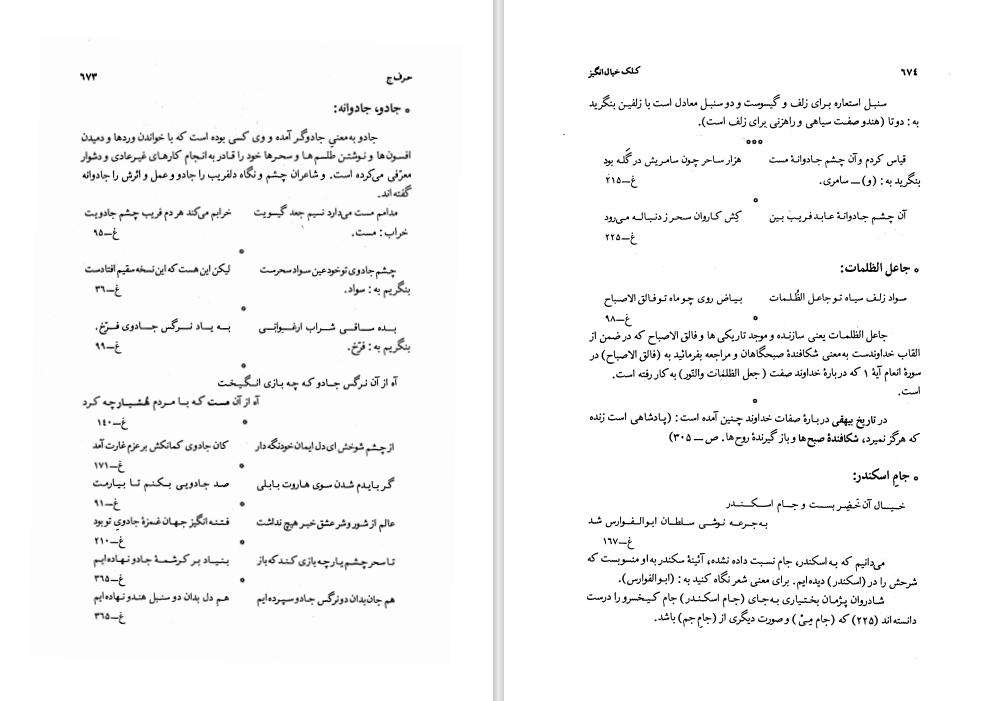 حرف ج
۶۷۳
* جادو، جادوانه:
جادو به معنی جادوگر آمده و وی کسی بوده است که با خواندن وردها و دمیدن
افسون‌ها و نوشتن طلسم‌ها و سحرها خود را قادر به انجام کارهای غیرعادی و دشوار
معرّفی می‌کرده است. و شاعران چشم و نگاه دلفریب را جادو و عمل و اثرش را جادوانه
گفته‌اند.
مدامم مست می‌دارد نسیم جعد گیسویت خرابم می‌کند هر دم فریب چشم جادویت
خراب: مست. غ—۹۵
*
چشم جادوی تو خود عین سواد سحرست لیکن این هست که این نسخه سقیم افتادست
بنگریم به: سواد. غ—۳۶
*
بده ساقی شراب ارغوانی به یاد نرگس جادوی فرّخ.
بنگریم به: فرّخ. غ—۹۹
*
آه از آن نرگس جادو که چه بازی انگیخت
آه از آن مست که با مردم هشیار چه کرد
* غ—۱۴۰
از چشم شوخش ای دل ایمان خود نگه دار کان جادوی کمانکش بر عزم غارت آمد
* غ—۱۷۱
گر بایدم شدن سوی هاروت بابلی صد جادویی بکنم تا بیارمت
* غ—۹۱
عالم از شور و شر عشق خبر هیچ نداشت فتنه انگیز جهان غمزهٔ جادوی تو بود
* غ—۲۱۰
تا سحر چشم یار چه بازی کند که باز بنیاد بر کرشمهٔ جادو نهاده‌ایم
* غ—۳۶۵
هم جان بدان دو نرگس جادو سپرده‌ایم هم دل بدان دو سنبل هندو نهاده‌ایم
غ—۳۶۵
۶۷۴
کلک خیال‌انگیز
سنبل استعاره برای زلف و گیسوست و دو سنبل معادل است با زلفین بنگرید
به: دو تا (هندو صفت سیاهی و راهزنی برای زلف است).
***
قیاس کردم و آن چشم جادوانهٔ مست هزار ساحر چون سامریش در گَله بود
بنگرید به: (و) — سامری. غ—۲۱۵
*
آن چشم جادوانهٔ عابد فریب بین کِش کاروان سحر ز دنباله می‌رود
غ—۲۲۵
* جاعل الظلمات:
سواد زلف سیاه تو جاعل الظُّلمات بیاض روی چو ماه تو فالق الاصباح
* غ—۹۸
جاعل الظلمات یعنی سازنده و موجد تاریکی‌ها و فالق الاصباح که در ضمن از
القاب خداوندست به معنی شکافندهٔ صبحگاهان و مراجعه بفرمائید به (فالق الاصباح) در
سورهٔ انعام آیهٔ ۱ که دربارهٔ خداوند صفت (جعل الظلمات والنّور) به کار رفته است.
است.
*
در تاریخ بیهقی دربارهٔ صفات خداوند چنین آمده است: (پادشاهی است زنده
که هرگز نمیرد، شکافندهٔ صبح‌ها و باز گیرندهٔ روح‌ها. ص — ۳۰۵)
* جامِ اسکندر:
خیال آن خَضِر بست و جام اسکندر
به جرعه نوشی سلطان ابوالفوارس شد
غ—۱۶۷
می‌دانیم که به اسکندر، جام نسبت داده نشده، آئینهٔ سکندر به او منسوبست که
شرحش را در (اسکندر) دیده‌ایم. برای معنی شعر نگاه کنید به: (ابوالفوارس).
شادروان پژمان بختیاری به جای (جام اسکندر) جام کیخسرو را درست
دانسته‌اند (۲۲۵) که (جام مِیْ) و صورت دیگری از (جامِ جم) باشد.